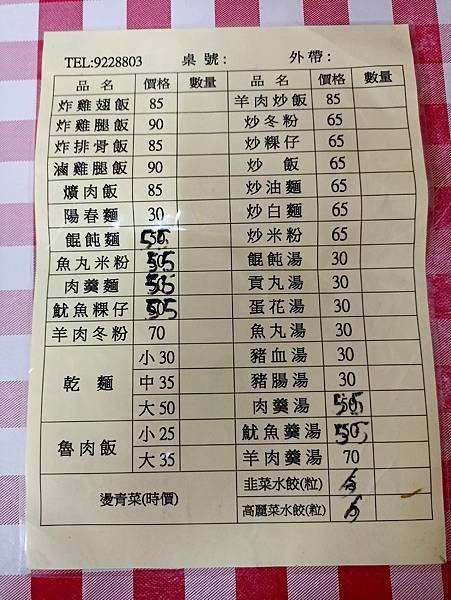 TEL:9228803 桌號: 外帶:
品名 價格 數量 品名 價格 數量
炸雞翅飯 85 羊肉炒飯 85
炸雞腿飯 90 炒冬粉 65
炸排骨飯 85 炒粿仔 65
滷雞腿飯 90 炒飯 65
爌肉飯 85 炒油麵 65
陽春麵 30 炒白麵 65
餛飩麵 炒米粉 65
魚丸米粉 餛飩湯 30
肉羹麵 貢丸湯 30
魷魚粿仔 蛋花湯 30
羊肉冬粉 70 魚丸湯 30
乾麵 小30 豬血湯 30
中35 豬腸湯 30
大50 肉羹湯
魯肉飯 小25 魷魚羹湯
大35 羊肉羹湯 70
燙青菜(時價) 韭菜水餃(粒)
高麗菜水餃(粒)